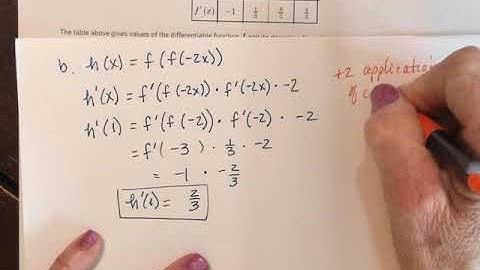 f'(x) -1 1/3
The table above gives values of the differentiable function f and its
b. h(x) = f(f(-2x))
h'(x) = f'(f(-2x)) · f'(-2x) · -2
h'(1) = f'(f(-2)) · f'(-2) · -2
= f'(-3) · 1/3 · -2
= -1 · -2/3
h'(1) = 2/3
+2 application
of c